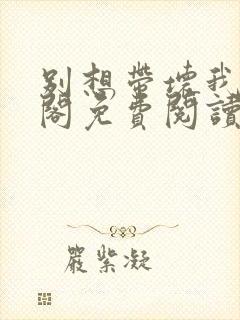 別想帶壞我
閣免費閱讀
嚴紫凝